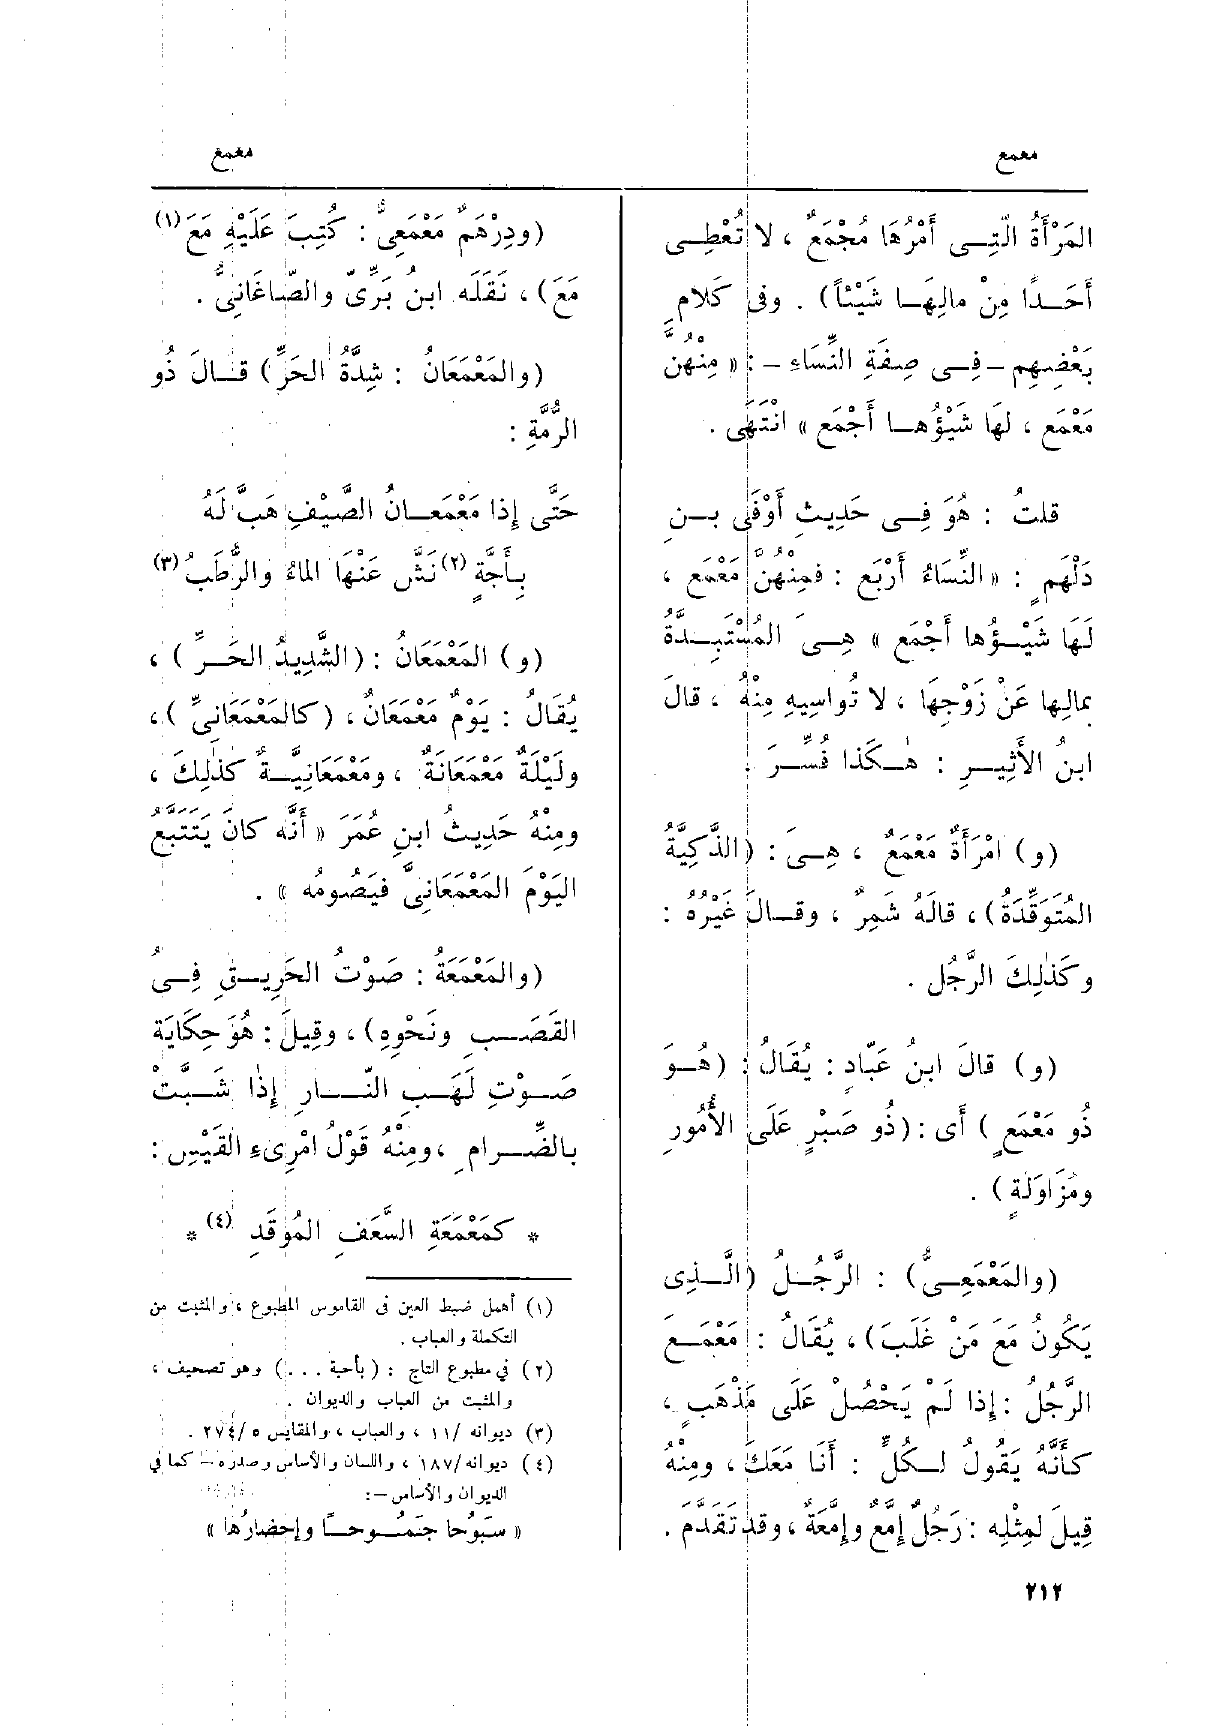 معمع
معمع
المَرْأَةُ الَّتِــى أَمْرُهَا مُجْمَعٌ ، لا تُعْطِــى
أَحَــدًا مِنْ مالِهَــا شَيْئاً) . وفى كَلامِ
بَعْضِهِم – فِــى صِفَةِ النِّسَاءِ – : « مِنْهُنَّ
مَعْمَع ، لهَا شَيْؤُهــا أَجْمَع » انْتَهَى .
قلتُ : هُوَ فِــى حَدِيثِ أَوْفَى بــنِ
دَلْهَمٍ : « النِّسَاءُ أَرْبَع : فمِنْهُنَّ مَعْمَع ،
لَهَا شَيْــؤُها أَجْمَع » هِــىَ المُسْتَبِــدَّةُ
بمالِها عَنْ زَوْجِهَا ، لا تُواسِيهِ مِنْهُ ، قالَ
ابنُ الأَثِيــرِ : هٰــكَذا فُسِّــرَ .
(و) امْرَأَةٌ مَعْمَعٌ ، هِــىَ : (الذَّكِيَّةُ
المُتَوَقِّدَةُ) ، قالَهُ شَمِرٌ ، وقــالَ غَيْرُه :
وكَذٰلِكَ الرَّجُل .
(و) قالَ ابنُ عَبّادٍ : يُقَالُ : (هُــوَ
ذُو مَعْمَعٍ ) أَى : (ذُو صَبْرٍ عَلَى الأُمُورِ
ومُزَاوَلَةٍ) .
(والمَعْمَعِــىُّ) : الرَّجُــلُ (الَّــذِى
يَكُونُ مَعَ مَنْ غَلَبَ) ، يُقَالُ : مَعْمَــعَ
الرَّجُلُ : إِذا لَمْ يَحْصُلْ عَلَى مَذْهَبٍ ،
كَأَنَّهُ يَقُولُ لــكُلٍّ : أَنَا مَعَكَ ، ومِنْهُ
قِيلَ لمِثْلِه : رَجُلٌ إِمَّع وإِمَّعَةٌ ، وقد تَقَدَّم .
(ودِرْهَمٌ مَعْمَعِىٌّ : كُتِبَ عَلَيْهِ مَعَ (١)
مَعَ) ، نَقَلَه ابنُ بَرِّىّ والصّاغَانِىُّ .
(والمَعْمَعَانُ : شِدَّةُ الحَرِّ) قــالَ ذُو
الرُّمَّةِ :
حَتَّى إِذا مَعْمَعــانُ الصَّيْفِ هَبَّ لَهُ
بــأَجَّةٍ (٢) نَشَّ عَنْهَا الماءُ والرُّطَبُ (٣)
(و) المَعْمَعَانُ : (الشَّدِيدُ الحَــرِّ ) ،
يُقَالُ : يَوْمٌ مَعْمَعَانٌ ، (كالمَعْمَعَانِىِّ ) ،
ولَيْلَةٌ مَعْمَعَانَةٌ ، ومَعْمَعَانِيَّــةٌ كَذٰلِكَ ،
ومِنْهُ حَدِيثُ ابنِ عُمَرَ « أَنَّه كانَ يَتَتَبَّعُ
اليَوْمَ المَعْمَعَانِىَّ فيَصُومُه » .
(والمَعْمَعَةُ : صَوْتُ الحَرِيــقِ فِــى
القَصَــبِ ونَحْوِهِ) ، وقِيلَ : هُوَ حِكَايَة
صَــوْتِ لَهَــبِ النّــارِ إِذا شَــبَّتْ
بالضِّــرامِ ، ومِنْهُ قَوْلُ امْرِىءِ القَيْسِ :
* كمَعْمَعَةِ السَّعَفِ المُوقَدِ (٤) *
(١) أهمل ضبط العين فى القاموس المطبوع ، والمثبت من
التكملة والعباب .
(٢) فى مطبوع التاج : (بأحبة . . .) وهو تصحيف ،
والمثبت من العباب والديوان .
(٣) ديوانه /١١ ، والعباب ، والمقايس ٥/٢٧٤ .
(٤) ديوانه/١٨٧ ، واللسان والأساس وصدره – كما فى
الديوان والأساس – :
« سَبُوحا جَمُــوحــاً وإِحضارُها »
٢١٢